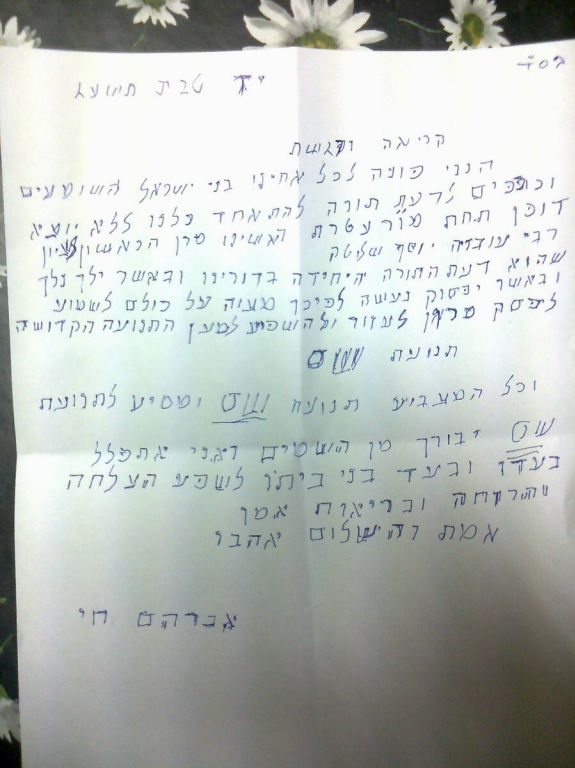 בסד
יד טבת תשעג
קריאה קדושת
הנני פונה לכל אחינו בני ישראל השומעים
וכופים לדעת תורה להתאחד כלנו ללא יוצא
דופן תחת מור עטרת ראשינו מרן הראשון לציון
רבי עובדיה יוסף שליטה
שהוא דעת התורה היחידה בדורינו ובאשר ילך נלך
ובאשר יפסוק נעשה לפיכך מצוה על כולם לשמוע
לפסק מרן לעזור ולהשפיע למען התנועה הקדושה
תנועת שס
וכל המצביע תנועת שס ומסיע לתנועת
שס יבורך מן השמים ואני אתפלל
בעדו ובעד בני ביתו לשפע הצלחה
והרוחה ובריאות אמן
אמת והשלום אהבו
אברהם חי